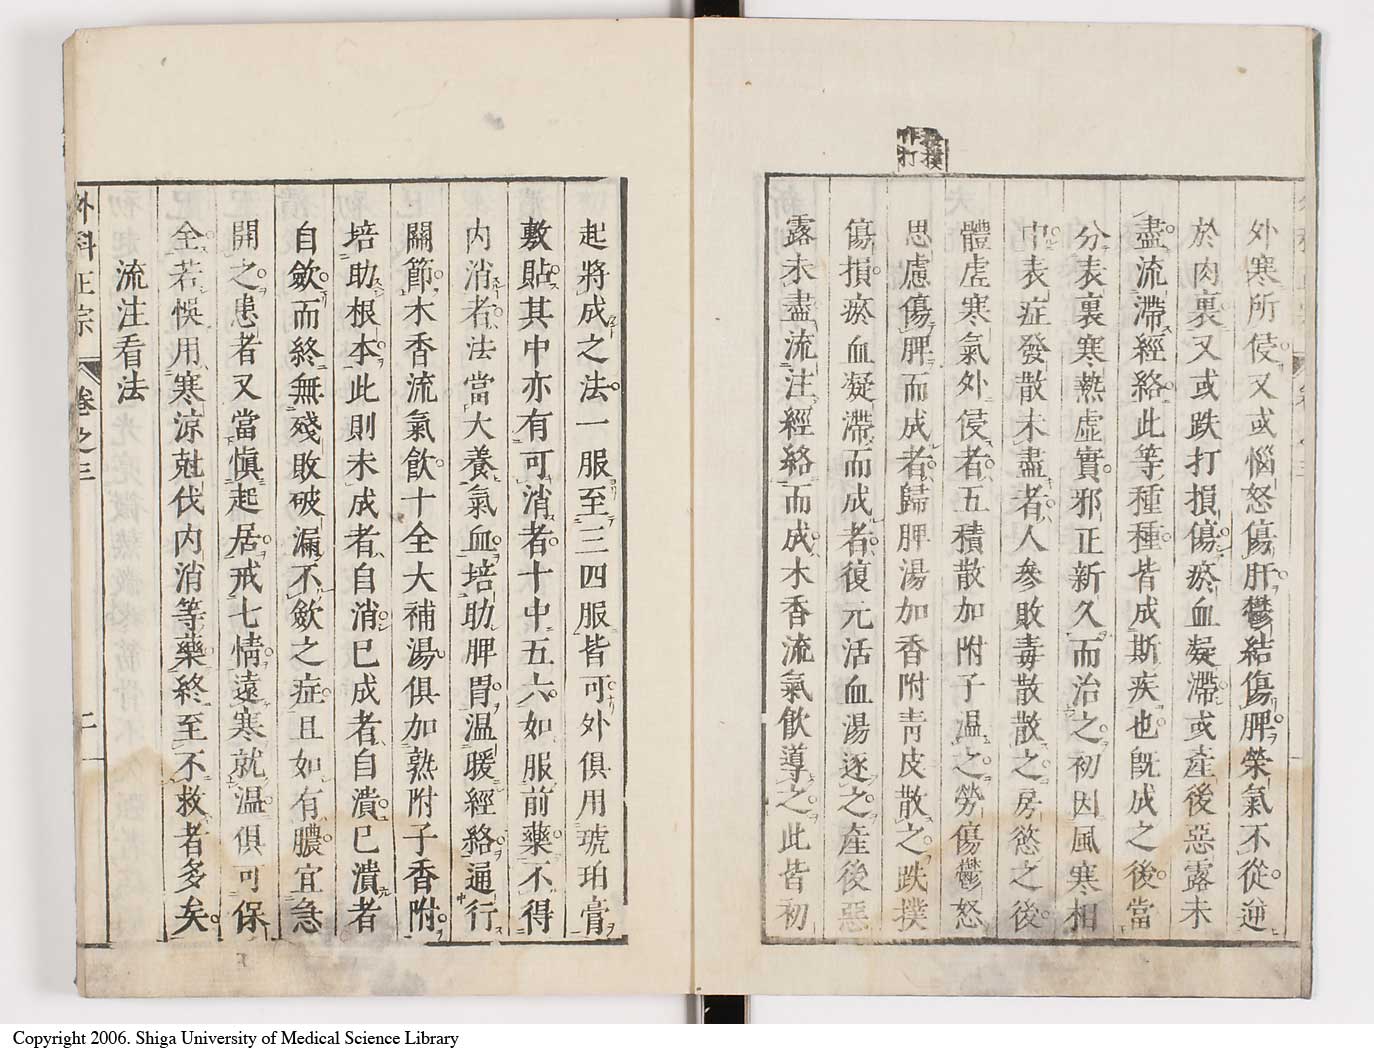 外寒所侵又或惱怒傷肝鬱結傷脾榮氣不從逆
於肉裏又或跌打損傷瘀血凝滯或產後惡露未
盡流滯經絡此等種種皆成斯疾也既成之後當
分表裏寒熱虛實邪正新久而治之初因風寒相
中表症發散未盡者人參敗毒散散之房慾之後
體虛寒氣外侵者五積散加附子温之勞傷鬱怒
思慮傷脾而成者歸脾湯加香附青皮散之跌撲
傷損瘀血凝滯而成者復元活血湯逐之產後惡
露未盡流注經絡而成木香流氣飲導之此皆初
跌撲
作打
起將成之法一服至三四服皆可外俱用琥珀膏
敷貼其中亦有可消者十中五六如服前藥不得
内消者法當大養氣血培助脾胃温暖經絡通行
關節木香流氣飲十全大補湯俱加熟附子香附
培助根本此則未成者自消已成者自潰已潰者
自斂而終無殘敗破漏不斂之症且如有膿宜急
開之患者又當慎起居戒七情遠寒就温俱可保
全若悞用寒涼尅伐内消等藥終至不救者多矣
流注看法
外科正宗 卷之三 二
Copyright 2006. Shiga University of Medical Science Library